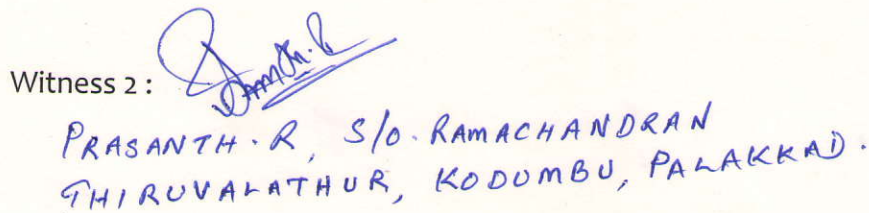 Witness 2 :
PRASANTH. R, S/O. RAMACHANDRAN
THIRUVALATHUR, KODUMBU, PALAKKAD.